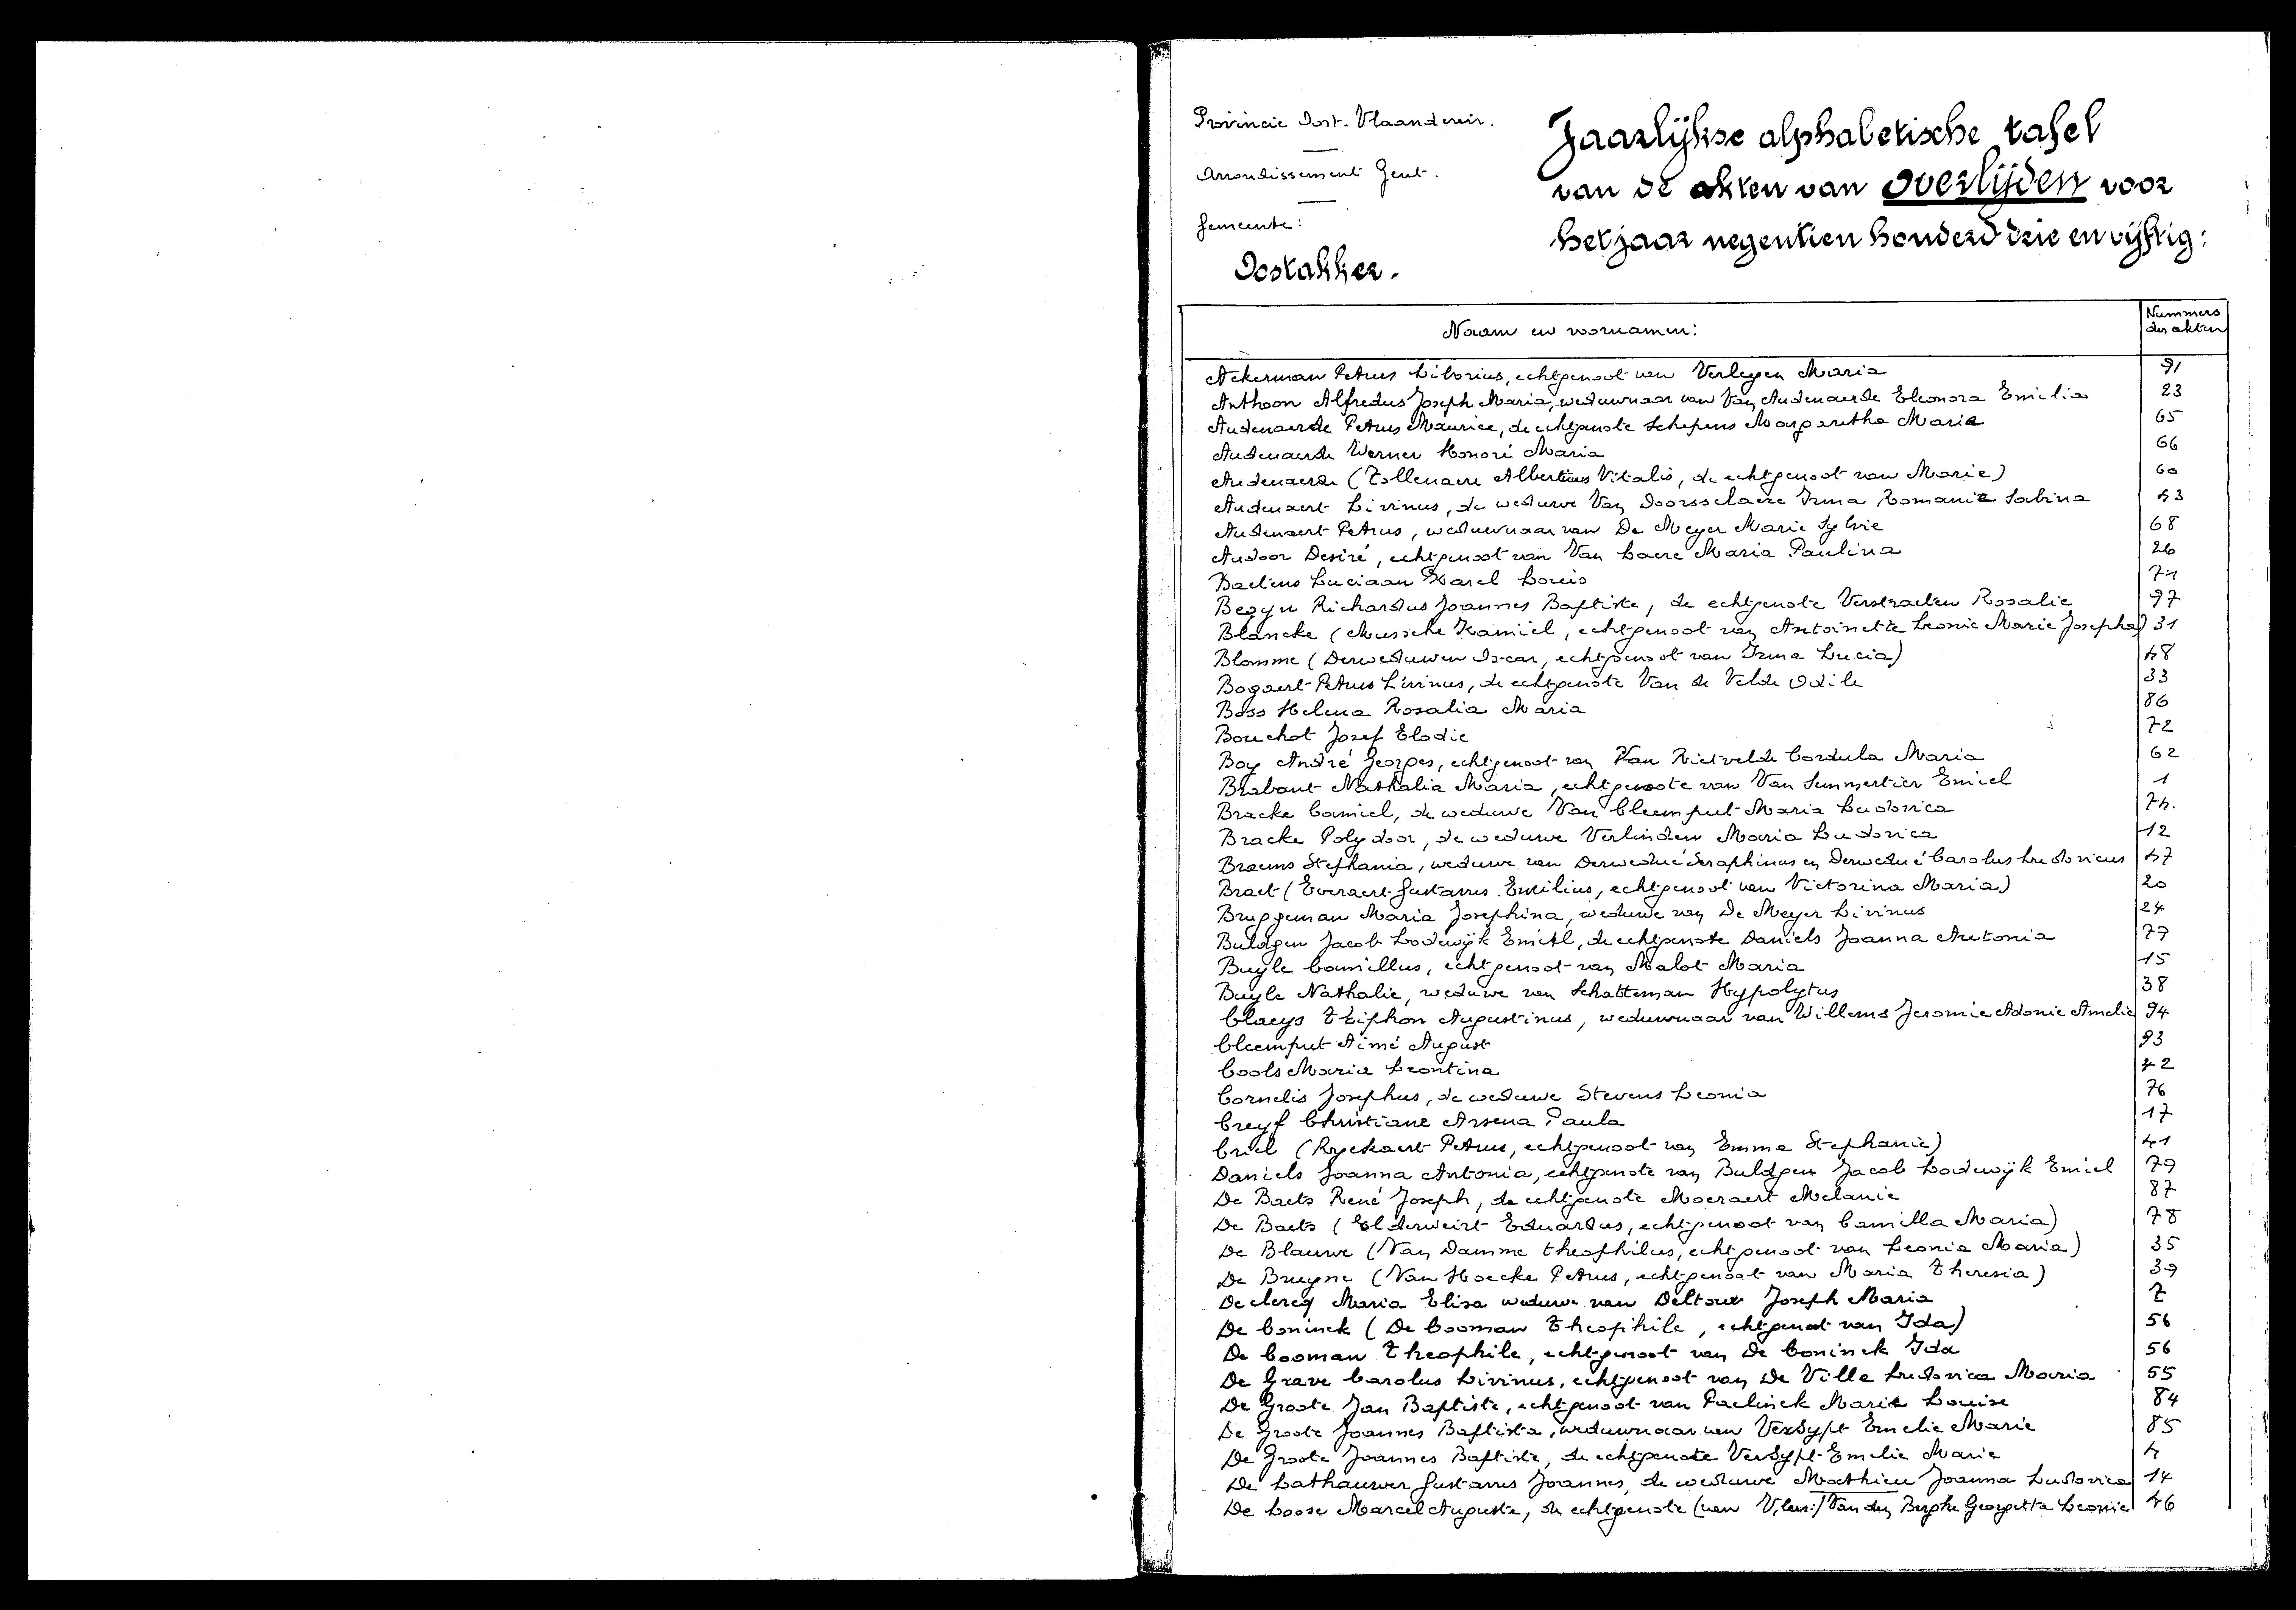 Provincie Oost-Vlaanderen.
Arrondissement Gent.
Gemeente:
Oostakker.
Jaarlijkse alphabetische tafel
van de akten van overlijden voor
het jaar negentien honderd drie en vijftig:
Naam en voornamen:
Nummers der akten
Ackerman Petrus Liborius, echtgenoot van Verleyen Maria 91
Anthoon Alfredus Joseph Maria, weduwnaar van Van Audenaerde Eleonora Emilia 23
Audenaerde Petrus Maurice, de echtgenote Schepens Margaretha Marie 65
Audenaerde Werner Honoré Maria 66
Audenaerde (Tollenaere Albertus Vitalis, de echtgenoot van Marie) 60
Audenaert Livinus, de weduwe Van Doorsselaere Irma Romanie Sabina 43
Audenaert Petrus, weduwnaar van De Meyer Marie Sylvie 68
Audoor Desiré, echtgenoot van Van Laere Maria Paulina 26
Baetens Luciaan Karel Louis 71
Begyn Richardus Joannes Baptiste, de echtgenote Verstraeten Rosalie 97
Blancke (Mussche Kamiel, echtgenoot van Antoinette Leonie Marie Josepha) 31
Blomme (Derweduwen Oscar, echtgenoot van Irma Lucia) 48
Bogaert Petrus Livinus, de echtgenote Van de Velde Odile 33
Boss Helena Rosalia Maria 86
Bouchot Josef Elodie 72
Boy André Georges, echtgenoot van Van Rietvelde Cordula Maria 62
Brabant Nathalia Maria, echtgenote van Van Semmertier Emiel 1
Bracke Camiel, de weduwe Van Cleemput Maria Ludovica 74.
Bracke Polydoor, de weduwe Verlinden Maria Ludovica 12
Braems Stephania, weduwe van Derwedué Seraphinus en Derwedué Carolus Ludovicus 47
Braet (Everaert Gustavus Emilius, echtgenoot van Victorina Maria) 20
Bruggeman Maria Josephina, weduwe van De Meyer Livinus 24
Buldgen Jacob Lodewijk Emiel, de echtgenote Daniels Joanna Antonia 79
Buyle Camillus, echtgenoot van Malot Maria 15
Buyle Nathalie, weduwe van Schatteman Hypolytus 38
Claeys Triphon Augustinus, weduwnaar van Willems Jeromie Adonie Amelie 94
Cleemput Aimé August 93
Cools Maria Leontina 42
Cornelis Josephus, de weduwe Stevens Leonia 76
Creyf Christiane Arsena Paula 17
Criel (Ryckaert Petrus, echtgenoot van Emma Stephanie) 41
Daniels Joanna Antonia, echtgenote van Buldgen Jacob Lodewijk Emiel 79
De Baets René Joseph, de echtgenote Moeraert Melanie 87
De Baets (Elderweirt Eduardus, echtgenoot van Camilla Maria) 78
De Blauwe (Van Damme Theophilus, echtgenoot van Leonia Maria) 35
De Bruyne (Van Hoecke Petrus, echtgenoot van Maria Theresia) 39
Declercq Maria Elisa weduwe van Deltour Joseph Maria 7
De Coninck (De Cooman Theophile, echtgenoot van Ida) 56
De Cooman Theophile, echtgenoot van De Coninck Ida 56
De Grave Carolus Livinus, echtgenoot van De Ville Ludovica Maria 55
De Groote Jan Baptiste, echtgenoot van Paelinck Marie Louise 84
De Groote Joannes Baptista, weduwnaar van Versypt Emelie Marie 85
De Groote Joannes Baptiste, de echtgenote Versypt Emelie Marie 4
De Lathauwer Gustavus Joannes, de weduwe Mathieu Joanna Ludovica 14
De Loose Marcel Auguste, de echtgenote (van Van den Berghe Georgetta Leonie 46